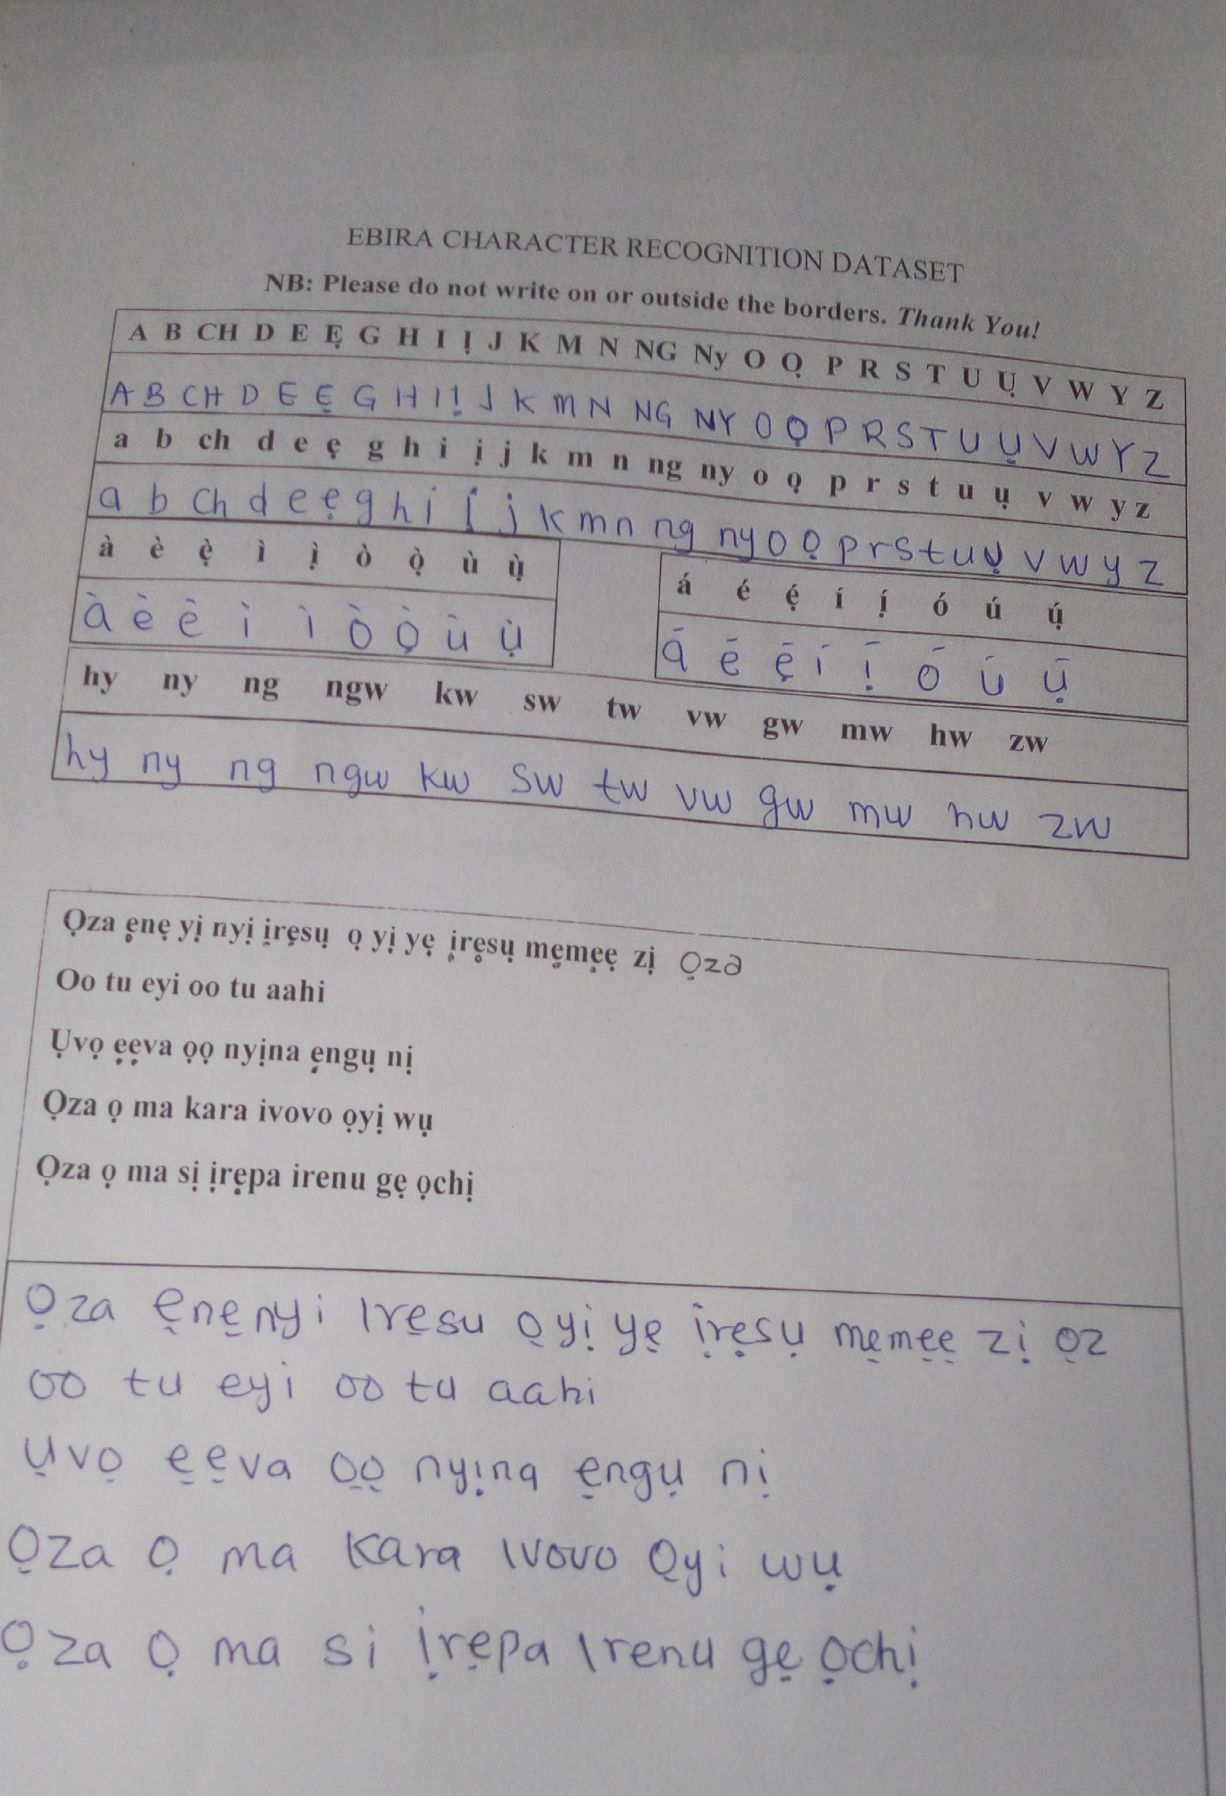 EBIRA CHARACTER RECOGNITION DATASET
NB: Please do not write on or outside the borders. Thank You!
A B CH D E Ẹ G H I Ị J K M N NG Ny O Ọ P R S T U Ụ V W Y Z
A B CH D E Ẹ G H I Ị J K M N NG NY O Ọ P R S T U Ụ V W Y Z
a b ch d e ẹ g h i ị j k m n ng ny o ọ p r s t u ụ v w y z
a b ch d e ẹ g h i ị j k m n ng ny o ọ p r s t u ụ v w y z
à è ẹ̀ ì ị̀ ò ọ̀ ù ụ̀
á é ẹ́ í ị́ ó ú ụ́
à è è ì ì ò ọ̀ ù ụ̀
ā ē ẹ̄ ī ị̄ ō ū ụ̄
hy ny ng ngw kw sw tw vw gw mw hw zw
hy ny ng ngw kw sw tw vw gw mw hw zw
Ọza ẹnẹ yị nyị ịrẹsụ ọ yị yẹ ịrẹsụ mẹmẹẹ zị Ọza
Oo tu eyi oo tu aahi
Ụvọ ẹẹva ọọ nyịna ẹngụ nị
Ọza ọ ma kara ivovo ọyị wụ
Ọza ọ ma sị ịrẹpa irenu gẹ ọchị
Ọza ẹnẹ nyi Irẹsu ọ yị yẹ ịrẹsụ mẹmẹẹ zị ọz
oo tu eyi oo tu aahi
Ụvọ ẹẹva ọọ nyịna ẹngụ nị
Ọza Ọ ma Kara Ivovo Ọyi wụ
Ọza Ọ ma si ịrẹpa Irenu gẹ ọchị